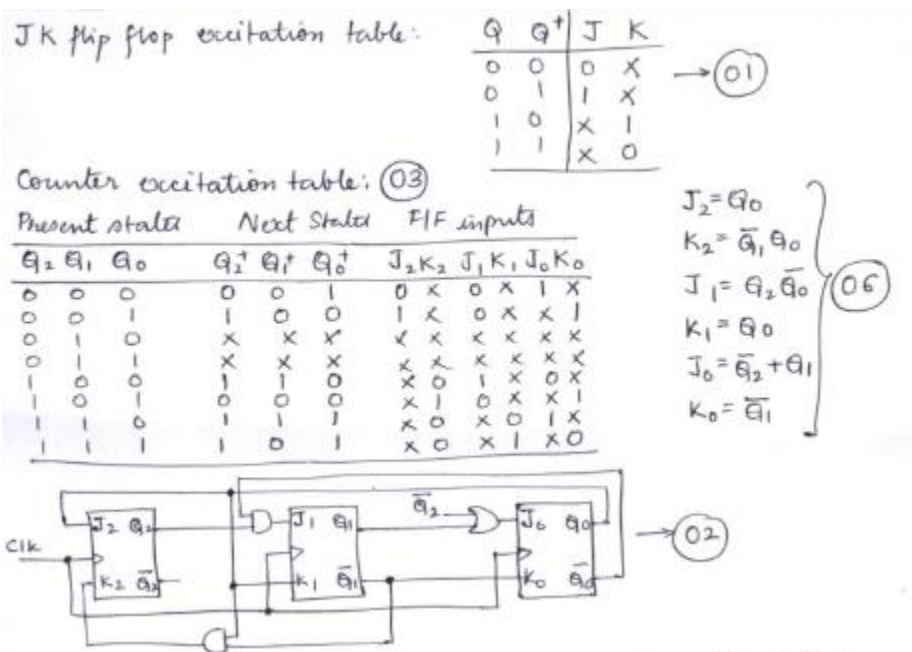 JK flip flop excitation table:
Q Q⁺ J K
0 0 0 X
0 1 1 X
1 0 X 1
1 1 X 0
→ 01
Counter excitation table: 03
Present states Next States F/F inputs
Q₂ Q₁ Q₀ Q₂⁺ Q₁⁺ Q₀⁺ J₂ K₂ J₁ K₁ J₀ K₀
0 0 0 0 0 1 0 X 0 X 1 X
0 0 1 1 0 0 1 X 0 X X 1
0 1 0 X X X X X X X X X
0 1 1 X X X X X X X X X
1 0 0 1 1 0 X 0 1 X 0 X
1 0 1 0 0 0 X 1 0 X X 1
1 1 0 1 1 1 X 0 X 0 1 X
1 1 1 1 0 1 X 0 X 1 X 0
J₂ = Q₀
K₂ = Q̅₁ Q₀
J₁ = Q₂ Q̅₀
K₁ = Q₀
J₀ = Q̅₂ + Q₁
K₀ = Q̅₁
06
Clk
J₂ Q₂
K₂ Q̅₂
J₁ Q₁
K₁ Q̅₁
Q̅₂
J₀ Q₀
K₀ Q̅₀
→ 02